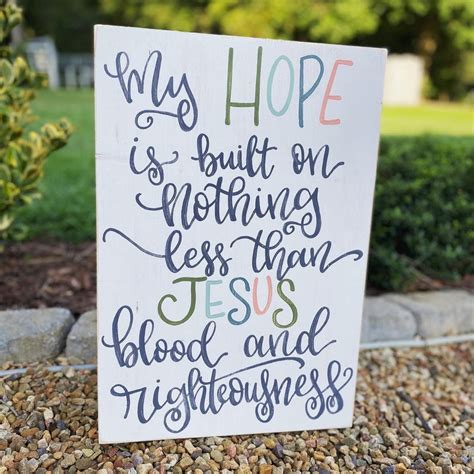 my HOPE
is built on
nothing
less than
JESUS
blood and
righteousness